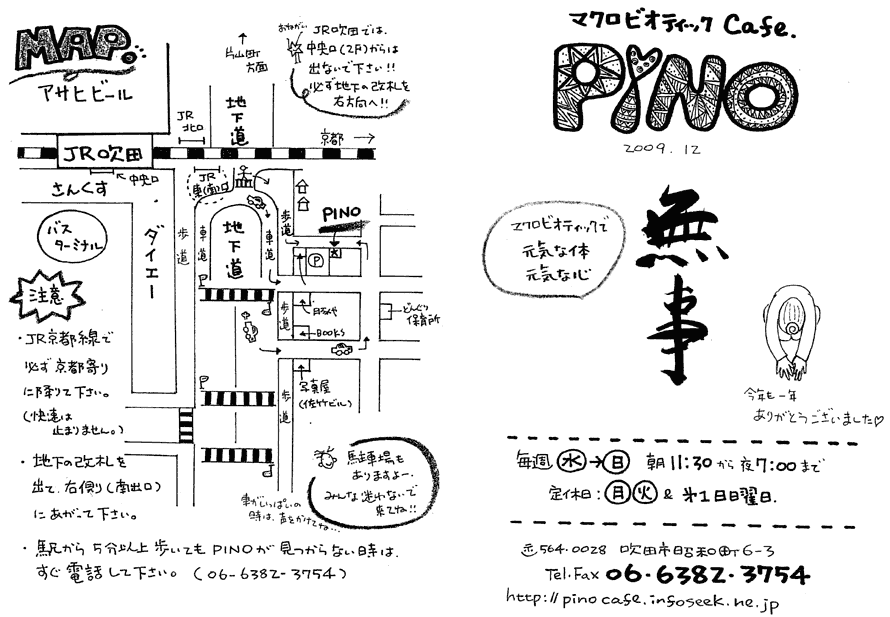 MAP.
アサヒビール
片山町
方面
おねがい
JR吹田では、
中央口(2F)からは
出ないで下さい!!
必ず地下の改札を
右方向へ!!
地下道
JR
北口
京都 →
JR吹田
中央口
JR
東(南)口
さんくす
バス
ターミナル
ダイエー
歩道
車道
地下道
車道
歩道
PINO
P
注意
日なたや
BOOKS
どんぐり
保育所
歩道
P
写真屋
(佐竹ビル)
P
歩道
・JR京都線で
必ず京都寄り
に降りて下さい。
(快速は
止まりません。)
・地下の改札を
出て、右側り(南出口)
にあがって下さい。
駐車場も
ありますよー.
みんな迷わないで
来てね!!
車がいっぱいの
時は、声をかけてね…
・駅から5分以上歩いてもPINOが見つからない時は、
すぐ電話して下さい。(06-6382-3754)
マクロビオティック Cafe.
PINO
2009.12
マクロビオティックで
元気な体
元気な心
無事
今年も一年
ありがとうございました♡
毎週 水→日 朝11:30から夜7:00まで
定休日:月火 & 第1日曜日.
〒564-0028 吹田市昭和町6-3
Tel.Fax 06-6382-3754
http://pinocafe.infoseek.ne.jp